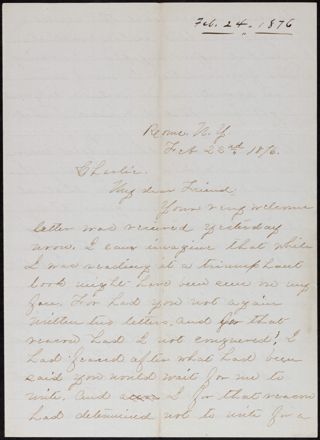 Feb. 24. 1876
Rome. N. Y
Feb 22nd. 1876.
Charlie.
My dear Friend,
Your very welcome
letter was received yesterday
noon. I can imagine that while
I was reading it a triumphant
look might have been seen on my
face. For had you not again
written two letters, and for that
reason had I not conquered! I
had feared after what had been
said you would wait for me to
write, and I for that reason
had determined not to write for a